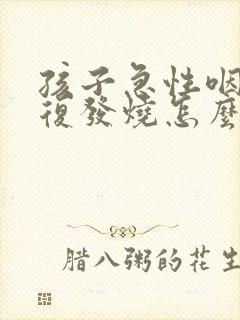 孩子急性咽
復發燒怎麼
腊八粥的花生